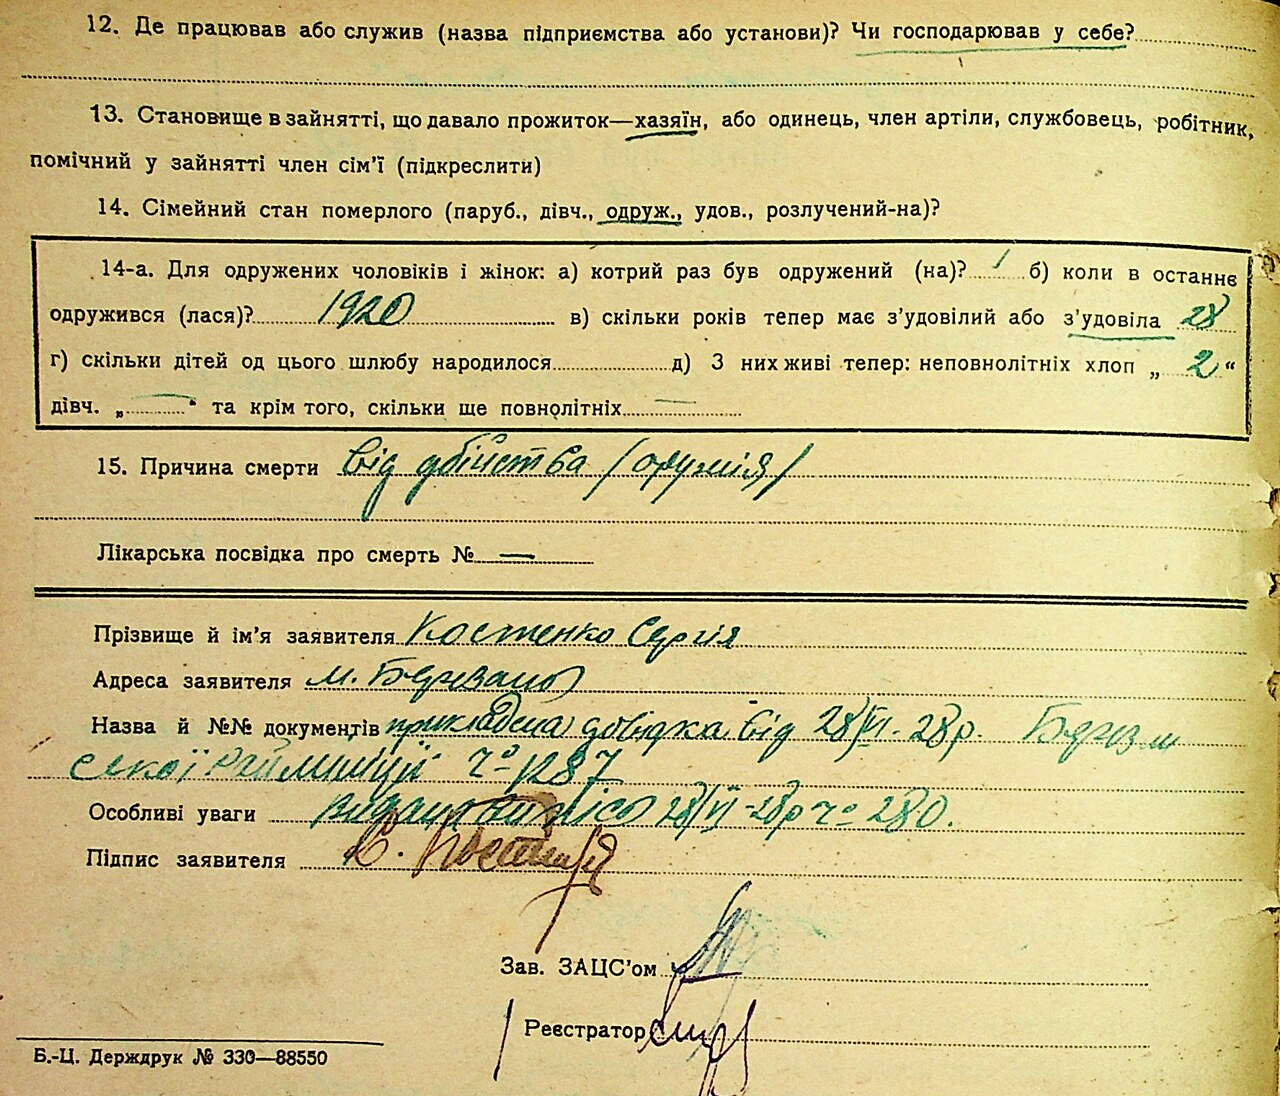 12. Де працював або служив (назва підприємства або установи)? Чи господарював у себе?
13. Становище в зайнятті, що давало прожиток—хазяїн, або одинець, член артіли, службовець, робітник,
помічний у зайнятті член сім'ї (підкреслити)
14. Сімейний стан померлого (паруб., дівч., одруж., удов., розлучений-на)?
14-а. Для одружених чоловіків і жінок: а) котрий раз був одружений (на)? 1 б) коли в останнє
одружився (лася)? 1920 в) скільки років тепер має з'удовілий або з'удовіла 28
г) скільки дітей од цього шлюбу народилося д) З них живі тепер: неповнолітніх хлоп „ 2 “
дівч. „ — “ та крім того, скільки ще повнолітніх —
15. Причина смерти від убійства /оружія/
Лікарська посвідка про смерть № —
Прізвище й ім'я заявителя Костенко Сергія
Адреса заявителя м. Березань
Назва й №№ документів прикладена довідка від 28/VI-28р.
ської Рай міліції Ч° 1287
Особливі уваги 28/VI-28р Ч° 280.
Підпис заявителя
Зав. ЗАЦС'ом
Реєстратор
Б.-Ц. Держдрук № 330—88550